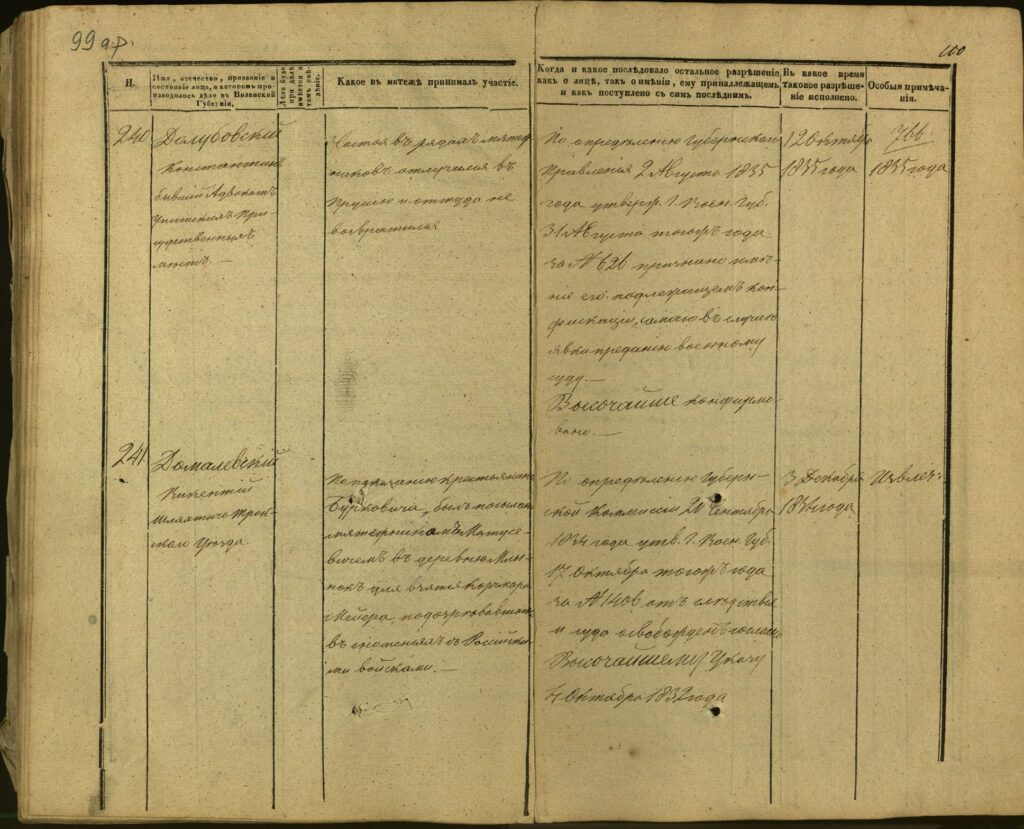 99 а.р.
100
Н.
Имя, отчество, прозваніе и
состояніе лица, о которомъ про-
изводилось дѣло въ Виленской
Губерніи.
Какое въ мятежѣ принималъ участіе.
Когда и какое послѣдовало остальное разрѣшеніе
какъ о лицѣ, такъ о имѣніи, ему принадлежащемъ
и какъ поступлено съ симъ послѣднимъ.
Въ какое время
таковое разрѣше-
ніе исполнено.
Особыя примѣча-
нія.
240
Долубовскій
Константинъ
бывшій Адвокатъ
Упитскихъ При-
сутственныхъ
мѣстъ.—
Состоя въ рядахъ мятеж-
никовъ отлучился въ
Пруссію и оттуда не
возвратился
По опредѣленію Губернскаго
Правленія 2 Августа 1835
года утверж. Г. Воен. Губ.
31 Августа тогожъ года
за № 626 признано имѣ-
ніе его подлежащемъ кон-
фискаціи, самаго въ случаѣ
явки преданію военному
суду.—
Высочайше конфирмо-
вано.—
12 Октября
1835 года
766.
1835 года
241
Домалевскій
Викентій
шляхтичъ Трок-
скаго Уѣзда.
По показанію крестьянина
Бурковича, былъ посыланъ
мятежникомъ Матусе-
вичемъ въ деревню
для взятія корчмаря
Мейера, подозрѣвавшагося
въ сношеніяхъ съ Россійски-
ми войсками.—
По опредѣленію Губерн-
ской Коммиссіи 20 Сентября
1834 года утв. Г. Воен. Губ.
17 Октября тогожъ года
за № 1406, отъ слѣдствія
и суда освобожденъ согласно
Высочайшему Указу
4 Октября 1832 года
3 Декабря
1834 года